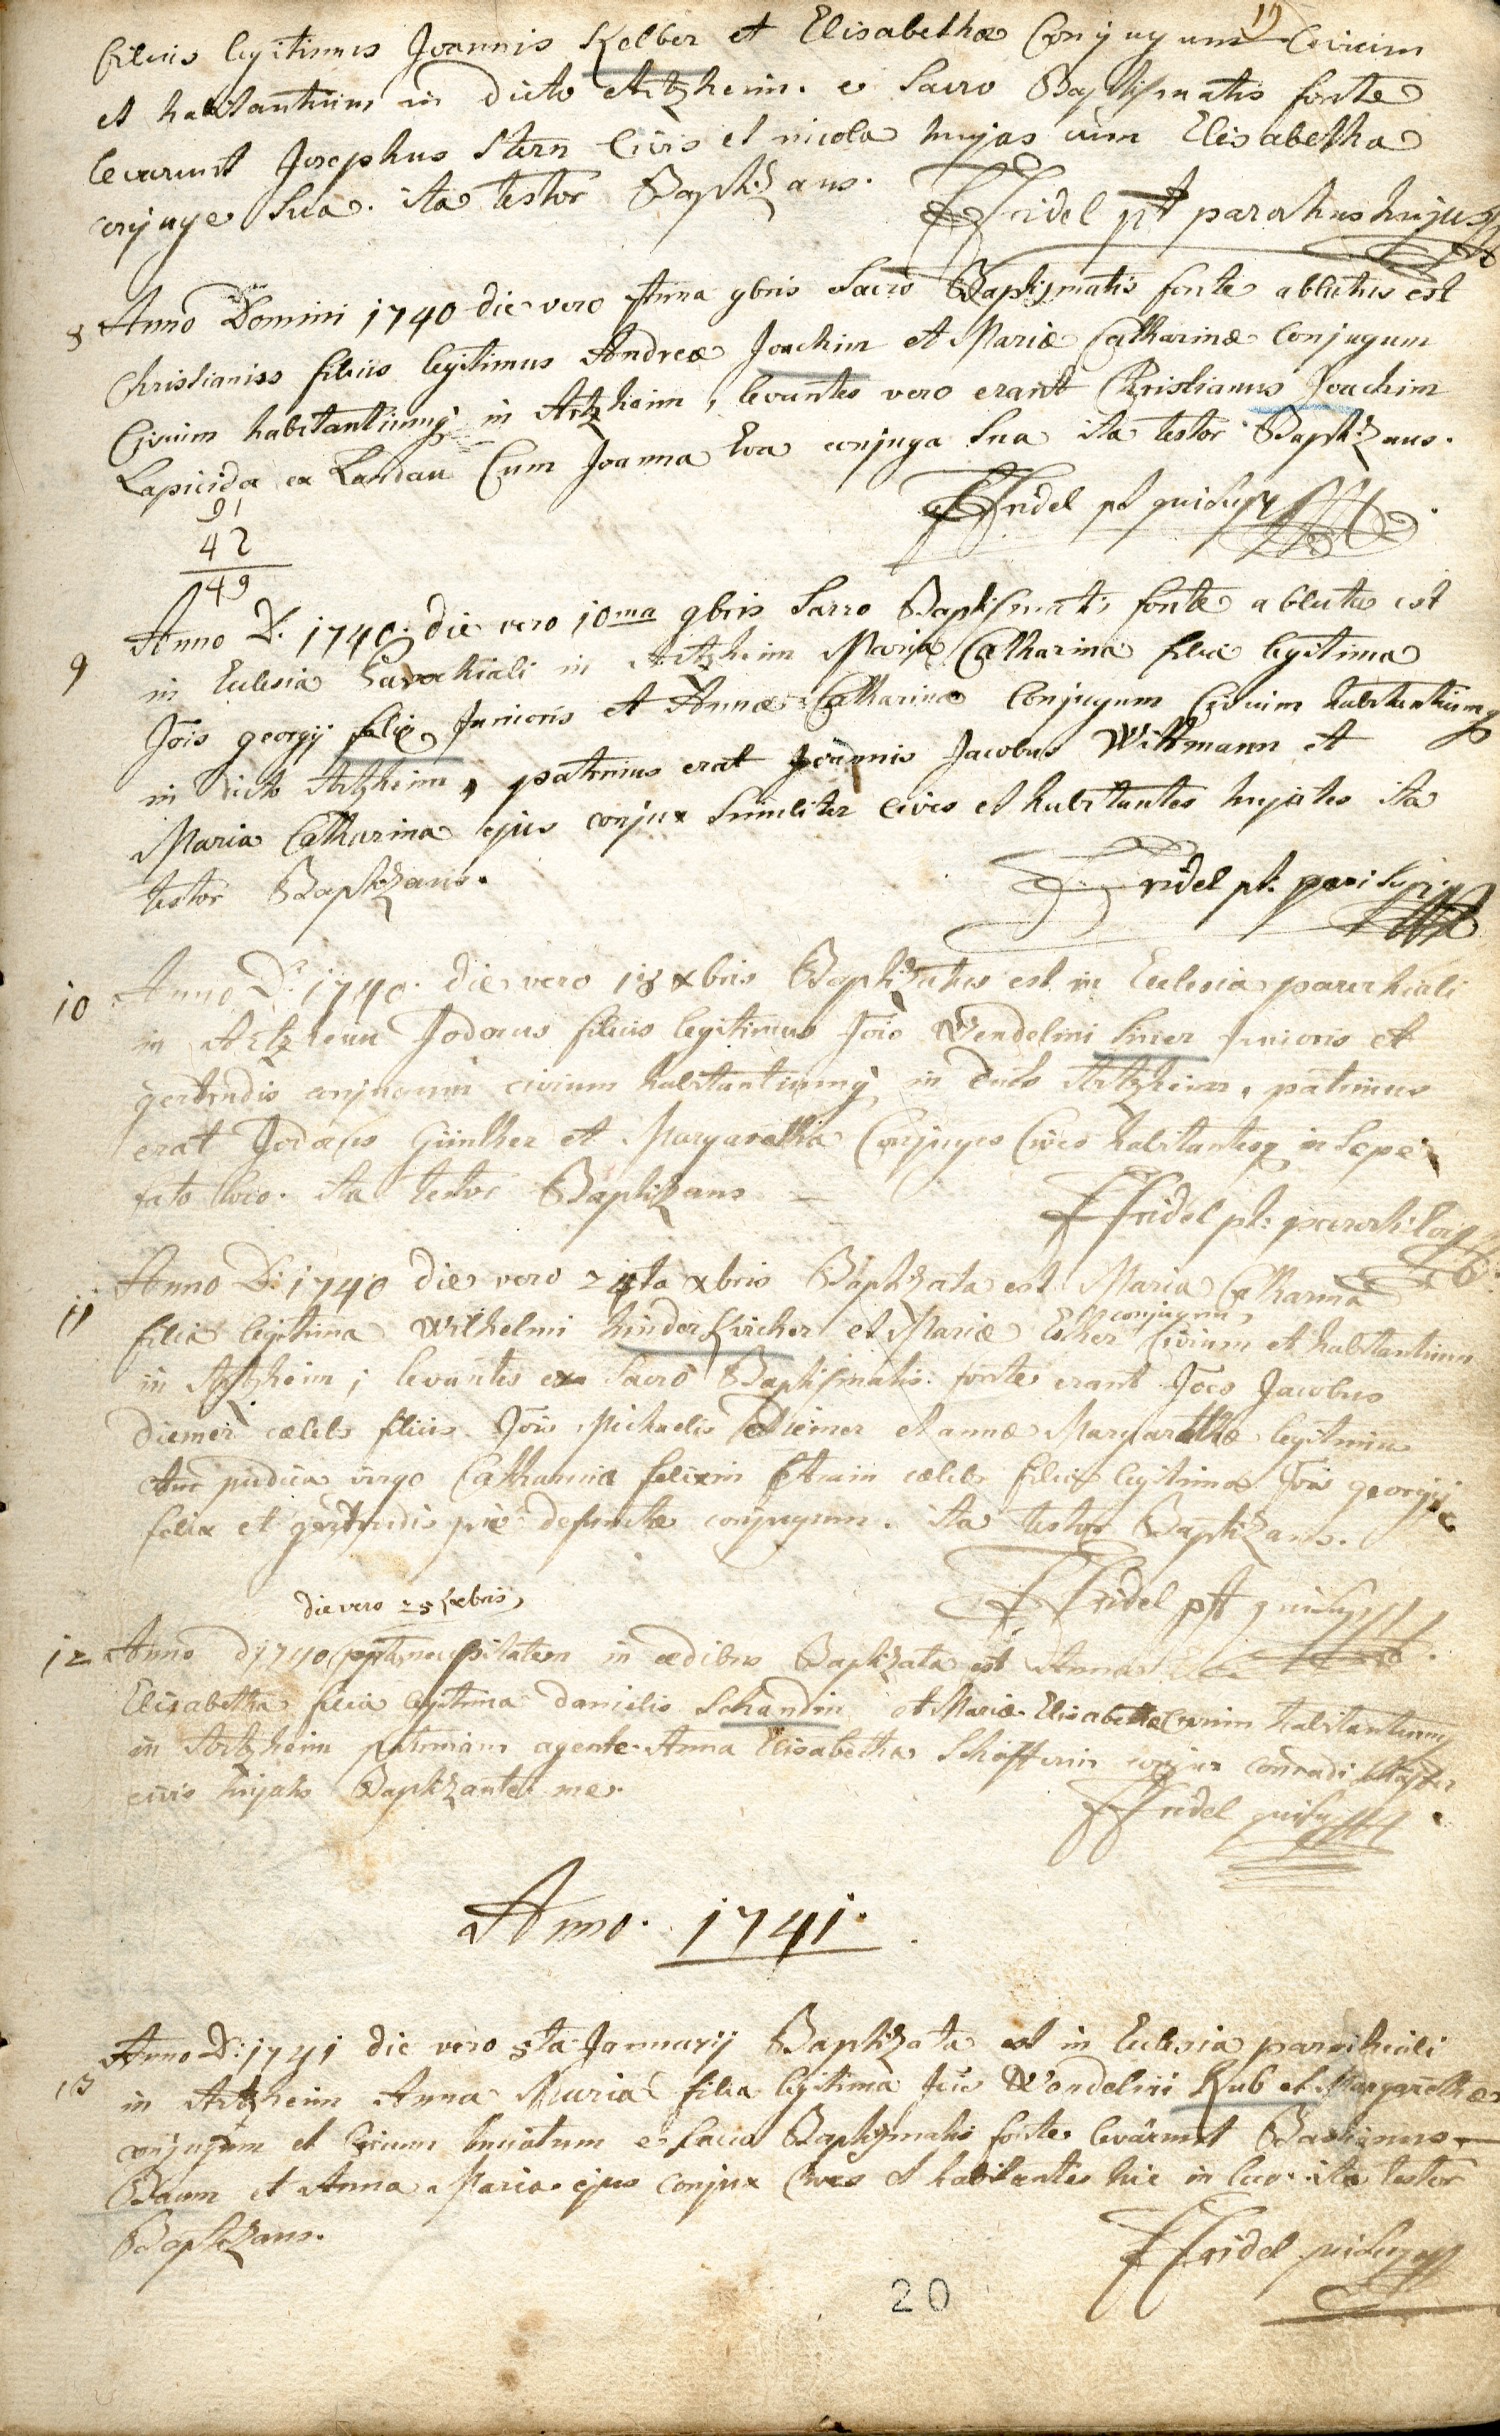 19
filius legitimus Joannis Kelber et Elisabethæ Conjugum Civium
et habitantium in dicto Artzheim. e Sacro Baptismatis fonte
levarunt Josephus Stern Civis et incola hujas cum Elisabetha
conjuge Sua. ita testor Baptizans.
FFridel pt parochus hujus
8 Anno Domini 1740 die vero 9bris Sacro Baptismatis fonte ablutus est
Christianus filius legitimus Andreæ Joachim et Mariæ Catharinæ Conjugum
Civium habitantiumq in Artzheim, levantes vero erant Christianus Joachim
Lapicida ex Landau Cum Joanna Eva conjuga Sua ita testor Baptizans.
FFridel pt qui supr
91
42
49
9 Anno D. 1740. die vero 10ma 9bris Sacro Baptismatis fonte abluta est
in Eclesia Parochiali in Artzheim Maria Catharina filia legitima
Jois georgij felix Junioris et Annæ Catharinæ Conjugum Civium habitantiumq
in dicto Artzheim, patrinus erat Joannis Jacobus Wittmann et
Maria Catharina ejus conjux Similiter cives et habitantes hujates ita
testor Baptizans.
Fridel pt.
10 Anno D. 1740. die vero 18 xbris Baptizatus est in Eclesia parochiali
in Artzheim Jodocus filius legitimus Jois Wendelini Simer Junioris et
gertrudis conjugum civium habitantiumq in dicto Artzheim, patrinus
erat Jodocus Günther et Margaretha Conjuges Cives habitantesq in Sepe
fato loco. ita testor Baptizans
FFridel pt: paroch: loci
11 Anno D: 1740 die vero 24ta xbris Baptizata est Maria Catharina
filia legitima Wilhelmi hinderKircher et Mariæ Ester conjugum, Civium et habitantium
in Artzheim; levantes ex Sacro Baptismatis fonte erant Joes Jacobus
diemer cælebs filius Jois Michaelis diemer et annæ Margarethæ legitimus
pudica virgo Catharina felixin cælebs filia legitima Jois georgij
felix et gertrudis pie defunctæ conjugum. ita testor Baptizans.
FFridel pt qui supr
die vero 25 xbris,
12 Anno d 1740 in ædibus Baptizata est Anna
Elisabetha filia legitima danielis Schandin et Mariæ Elisabethæ Civium habitantiumq
in Artzheim agente Anna Elisabetha Schäfferin conjux conradi schäffer
civis hujatis Baptizante me.
FFridel qui supr
Anno. 1741.
13 Anno D: 1741 die vero 5ta Januarij Baptizata est in Eclesia parochiali
in Artzheim Anna Maria filia legitima Jois Wendelini Kub et Margarethæ
conjugum et Civium e Sacro Baptismatis fonte levârunt
Baum et Anna Maria ejus conjux Cives et habitantes hic in loco ita testor
Baptizans.
FFridel qui supr
20